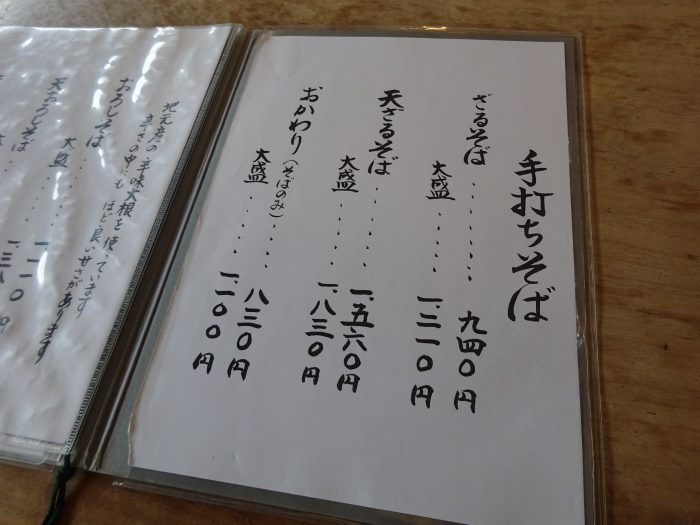 手打ちそば
ざるそば・・・・・・・九四〇円
大盛・・・・・一、三一〇円
天ざるそば・・・・・一、五六〇円
大盛・・・・・一、八三〇円
おかわり(そばのみ)・・・・八三〇円
大盛・・・・・一、二〇〇円
地元産の辛味大根を使っています
辛さの中にもほど良い甘さがあります
おろしそば
大盛
天おろしそば